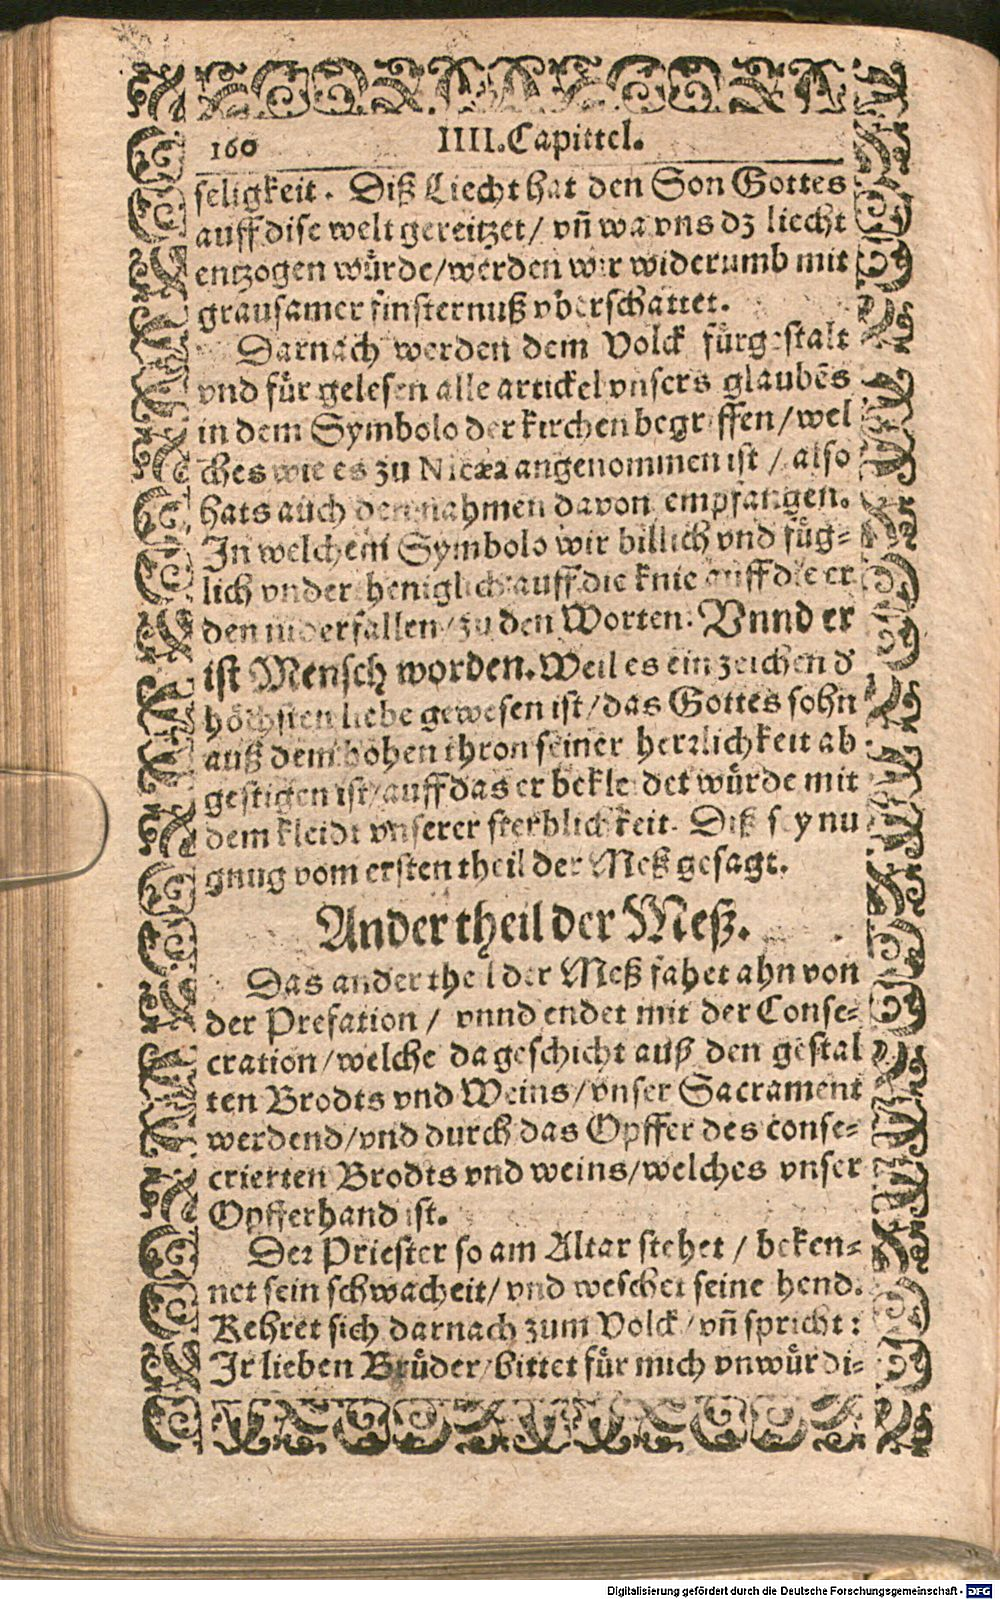 160 IIII. Capittel.
seligkeit. Diß Liecht hat den Son Gottes
auff dise welt gereitzet / vñ wa vns dz liecht
entzogen würde / werden wir widerumb mit
grausamer finsternuß vberschattet.
Darnach werden dem Volck fürgestalt
vnd für gelesen alle artickel vnsers glaubēs
in dem Symbolo der kirchen begriffen / wel
ches wie es zu Nicæa angenommen ist / also
hats auch den nahmen davon empfangen.
In welchem Symbolo wir billich vnd füg-
lich vndertheniglich auff die knie auff die er
den niderfallen / zu den Worten: Vnnd er
ist Mensch worden. Weil es ein zeichen d'
höchsten liebe gewesen ist / das Gottes sohn
auß dem hohen thron seiner herrlichkeit ab
gestigen ist / auff das er bekleidet würde mit
dem kleidt vnserer sterblichkeit. Diß sey nu
gnug vom ersten theil der Meß gesagt.
Ander theil der Meß.
Das ander theil der Meß fahet ahn von
der Prefation / vnnd endet mit der Conse-
cration / welche da geschicht auß den gestal
ten Brodts vnd Weins / vnser Sacrament
werdend / vnd durch das Opffer des conse-
crierten Brodts vnd weins / welches vnser
Opfferhand ist.
Der Priester so am Altar stehet / beken-
net sein schwacheit / vnd weschet seine hend.
Kehret sich darnach zum Volck / vñ spricht:
Ir lieben Brüder / bittet für mich vnwürdi-
Digitalisierung gefördert durch die Deutsche Forschungsgemeinschaft - DFG